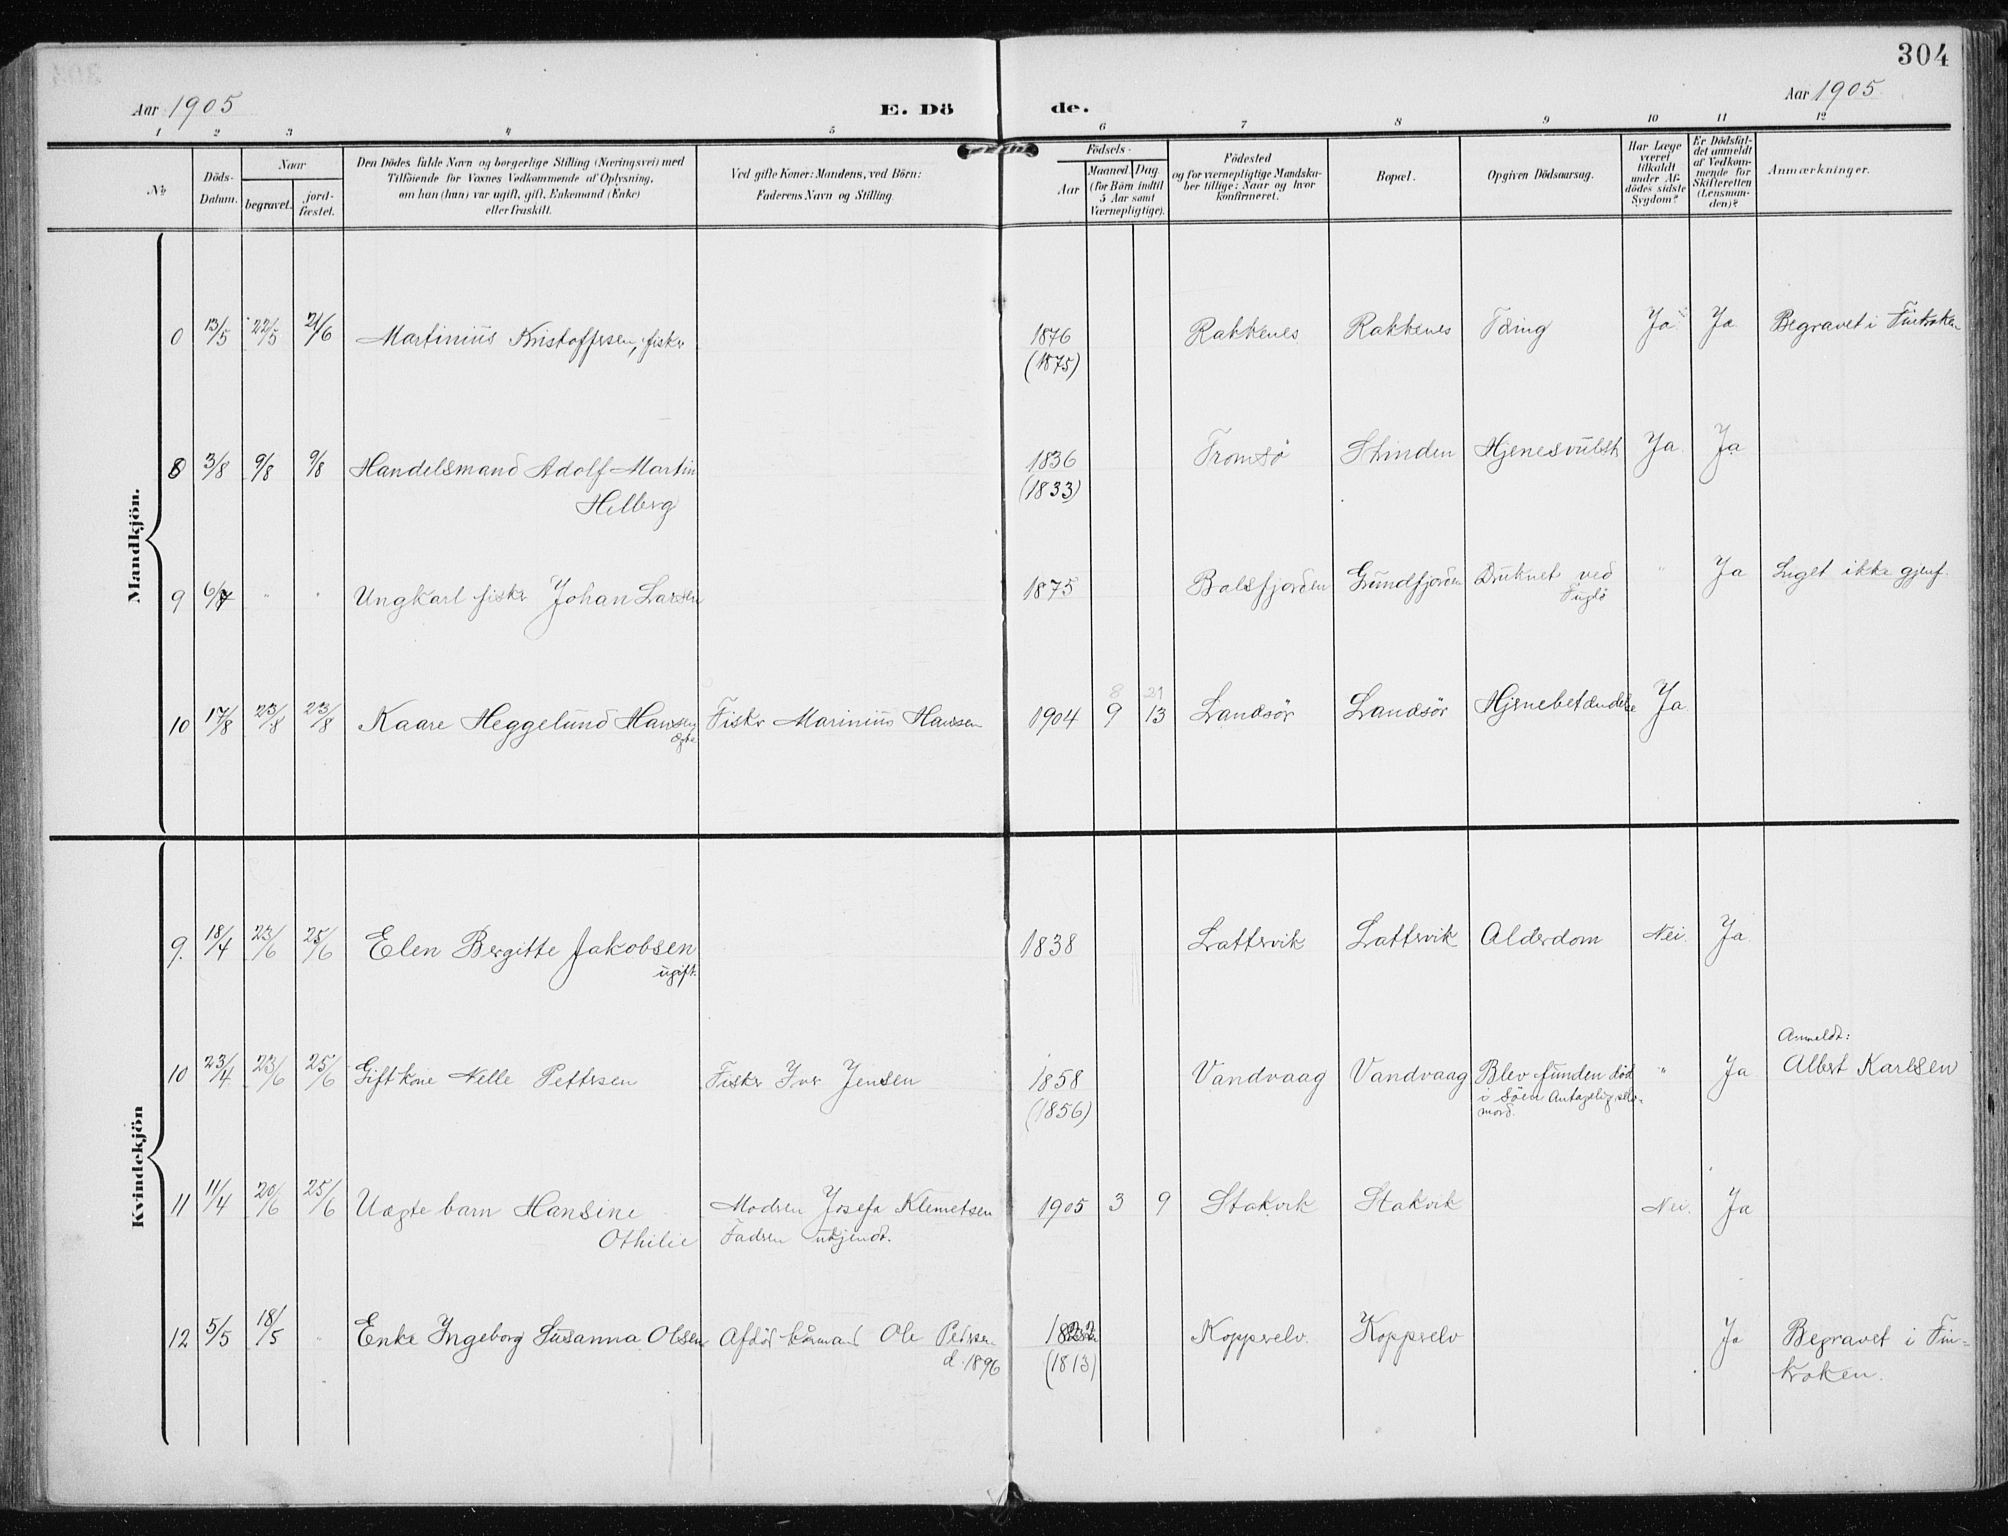 304
Aar 1905
E. Dö
de.
Aar 1905
1 2 3 4 5 6 7 8 9 10 11 12
No.
Döds-
Datum.
Naar
begravet.
jord-
fæstet.
Den Dödes fulde Navn og borgerlige Stilling (Næringsvei) med
Tilföiende for Voxnes Vedkommende af Oplysning,
om han (hun) var ugift, gift, Enkemand (Enke)
eller fraskilt.
Ved gifte Koner: Mandens, ved Börn:
Faderens Navn og Stilling.
Födsels-
Aar
Maaned. Dag.
(for Börn indtil
5 Aar samt
Værnepligtige).
Födested
og for værnepligtige Mandska-
ber tillige: Naar og hvor
konfirmeret.
Bopæl.
Opgiven Dödsaarsag.
Har Læge
været
tilkaldt
under Af-
dödes sidste
Sygdom?
Er Dödsfal-
det anmeldt
af Vedkom-
mende for
Skifteretten
(Lensman-
den)?
Anmærkninger.
Mandkjön.
0 13/5 22/5 21/6 Martinius Kristoffersen, fisker 1876 Rakkenes Rakkenes Tæring Ja Ja Begravet i Finkroken
(1875)
8 3/8 9/8 9/8 Handelsmand Adolf Martin 1836 Tromsö Skinden Hjernesvulst Ja Ja
Hilberg (1833)
9 6/7 " " Ungkarl fisker Johan Larsen 1875 Balsfjorden Grundfjorden Druknet ved " Ja Liget ikke gjenf.
Fuglö
8 21
10 17/8 23/8 23/8 Kaare Heggelund Hansen Fisker Marinius Hansen 1904 9 13 Landsör Landsör Hjernebetændelse Ja
ægte
Kvindekjön
9. 18/4 23/6 25/6 Elen Bergitte Jakobsen 1838 Lattervik Lattervik Alderdom Nei. Ja
ugift.
Anmeldt:
10 23/4 23/6 25/6 Gift kone Nelle Pettersen Fisker Iver Jensen 1858 Vandvaag Vandvaag Blev funden död " Ja Albert Karlsen
(1856) i Söen Antagelig selv-
mord.
11 11/4 20/6 25/6 Uægte barn Hansine Modren Josefa Klemetsen 1905 3 9 Stakvik Stakvik Nei. Ja
Othilie Fadren ukjendt.
12 5/5 18/5 " Enke Ingeborg Susanna Olsen Afdöd kårmand Ole Peders 1822 Kopperelv. Kopperelv Ja Begravet i Fin-
d. 1896 (1813) kroken.